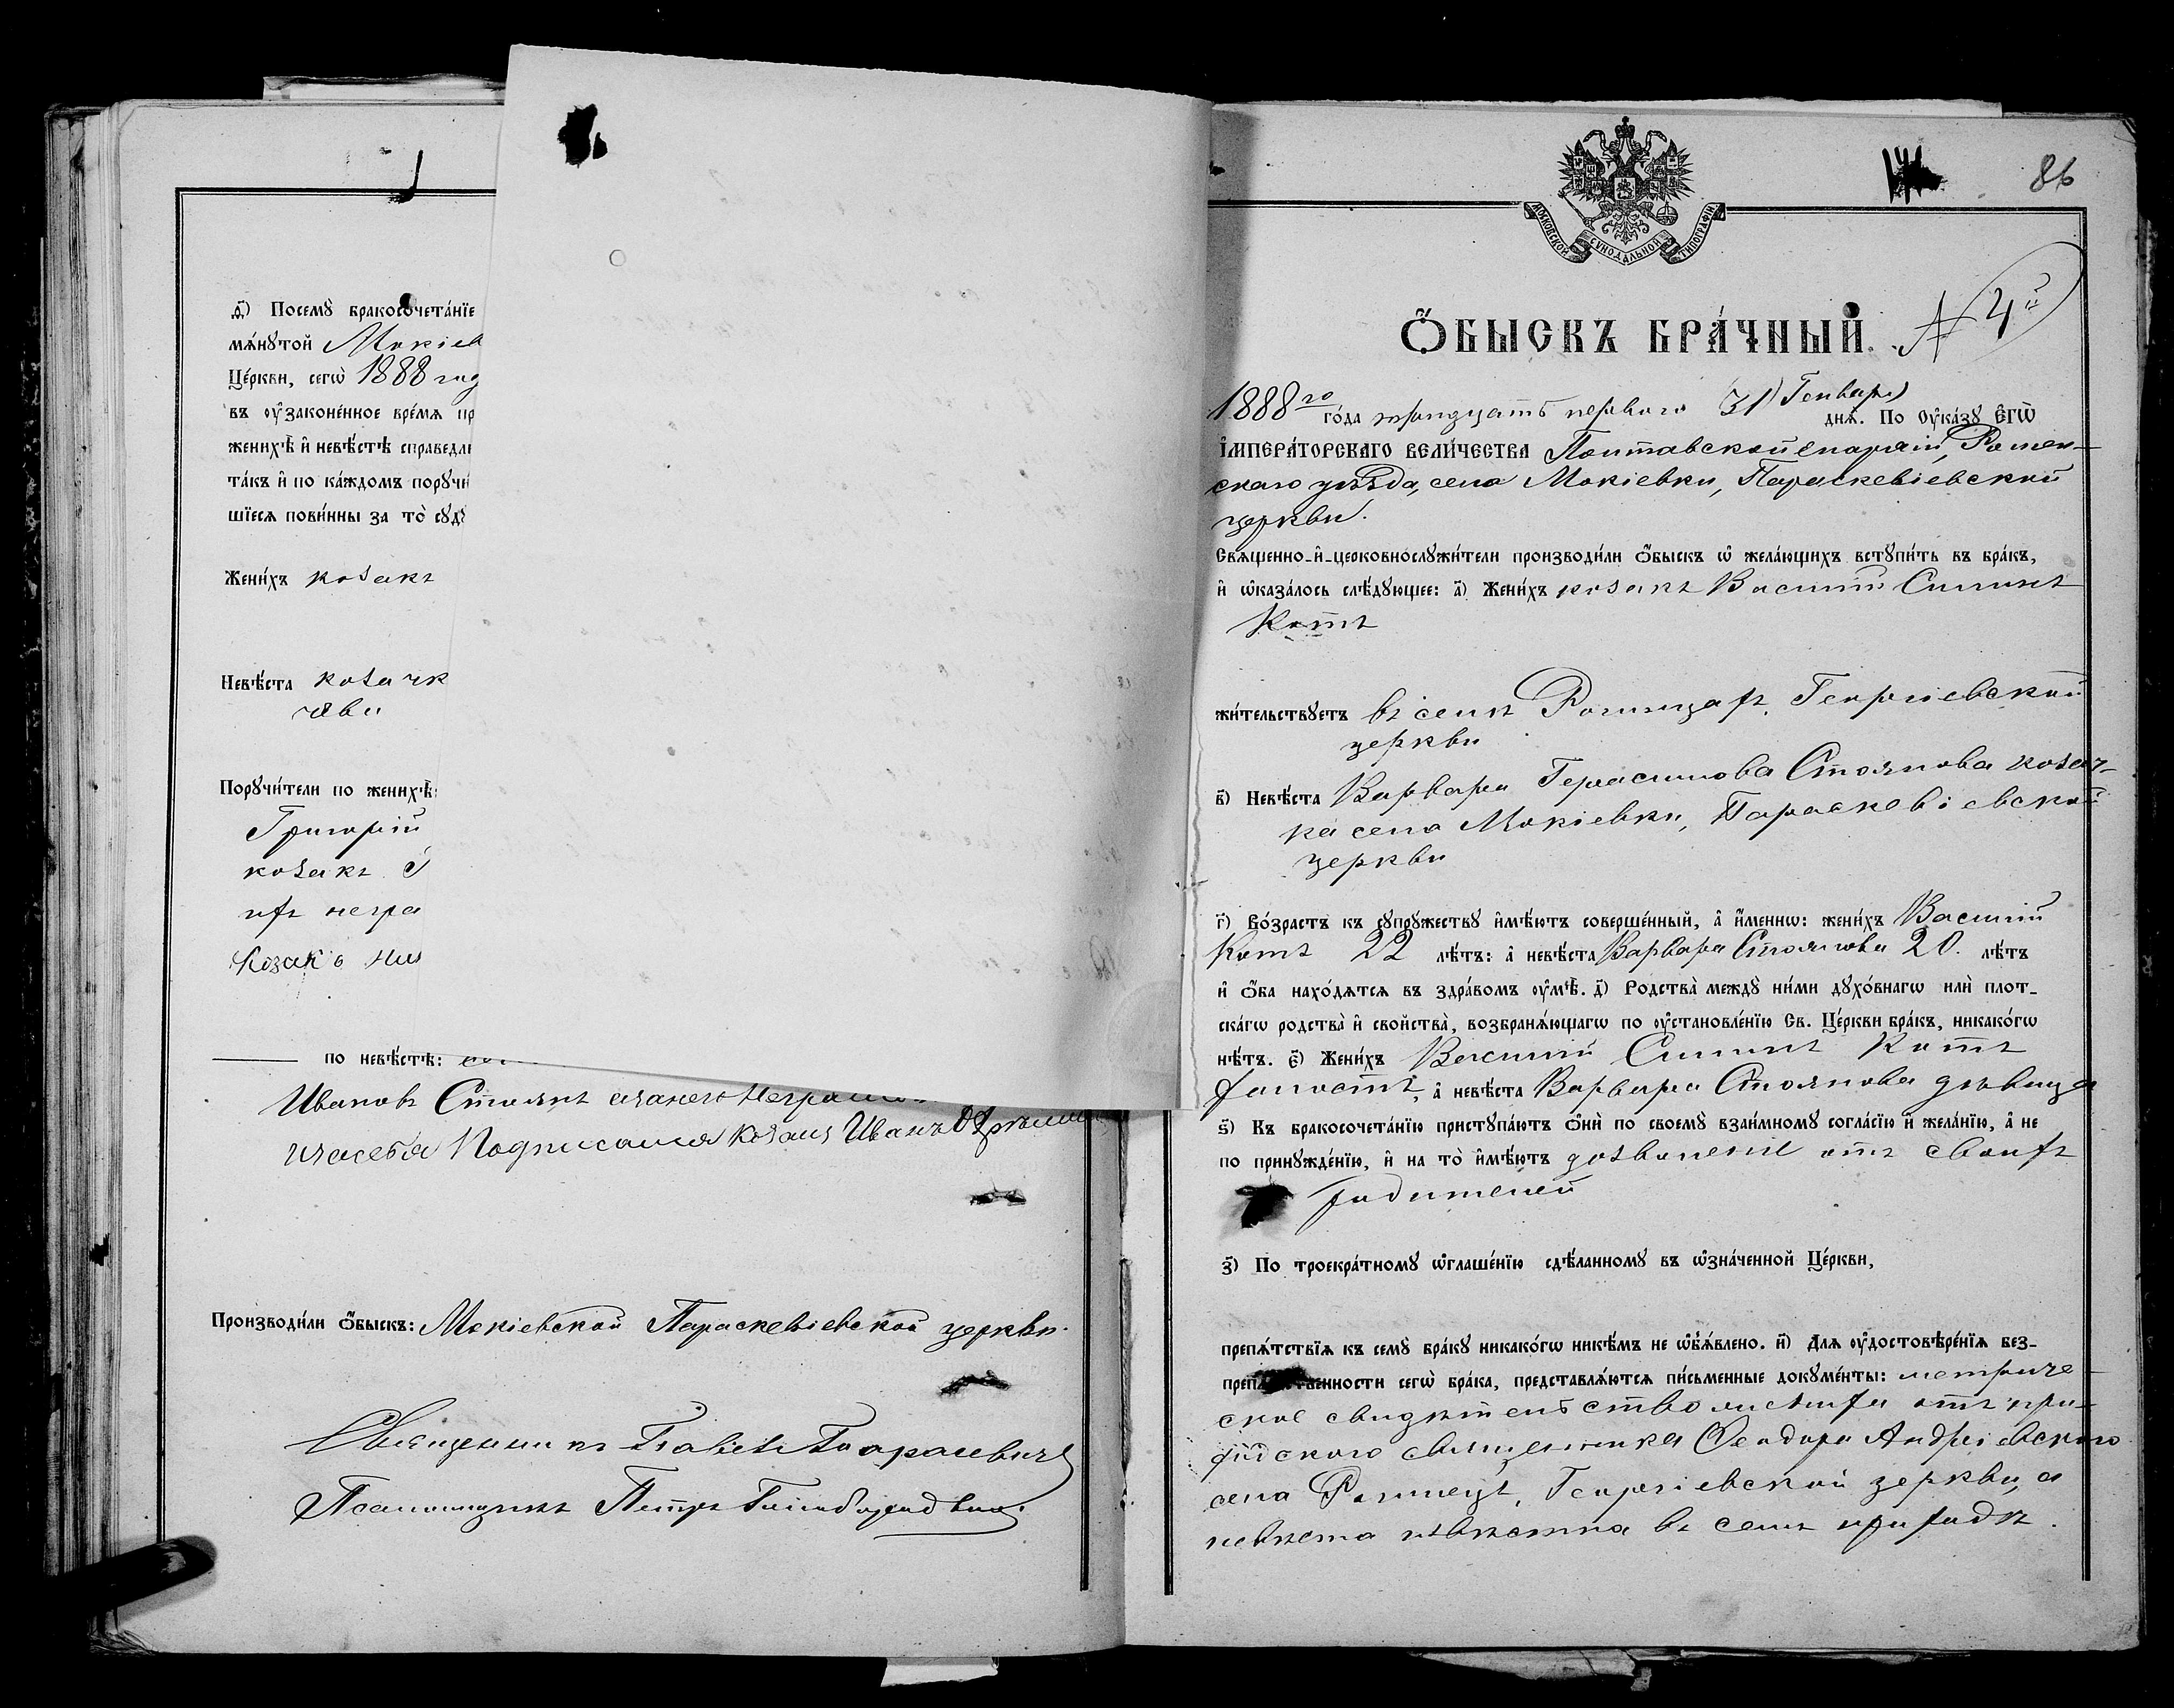 д҃) Посемꙋ̀ бракосочета́нїе
мѧ́нꙋтой Мокіев
Це́ркви, сегѡ̀ 1888 год
въ ᲂу҆законе́нное вре́мѧ пр
женихѣ̀ и҆ невѣ́стѣ справедли
та́къ и҆ по ка́ждомъ порꙋчи
шїесѧ пови́нны за то̀ сꙋдꙋ
Жени́хъ козакъ
Невѣ́ста козачк
чѣви
Порꙋчи́тели по женихѣ̀:
Григорій
козакъ
ихъ негра
Козакъ
по невѣ́стѣ:
Ивановъ Стоянъ
Подписался козакъ Иванъ
Производи́ли ѻ҆́быскъ: Мокіевской Параскевіевской церкви.
Священникъ Павелъ Тарасевичъ
Псаломщикъ Петръ
86
МОСКОВСКОЙ СѴНОДАЛЬНОЙ ТИПОГРАФІИ
Ѻ҆БЫСКЪ БРА́ЧНЫЙ. № 4й
1888го го́да тридцать перваго (31) Генваря днѧ̀. По Оу҆ка́зꙋ Є҆ГѠ̀
І҆МПЕРА́ТОРСКАГО ВЕЛИ́ЧЕСТВА Полтавской епархіи, Ромен-
скаго уѣзда, села Мокіевки, Параскевіевской
церкви.
Свѧще́нно-и҆-церковнослꙋжи́тели производи́ли ѻ҆́быскъ ѡ҆ жела́ющихъ встꙋпи́ть въ бра́къ,
и҆ ѡ҆каза́лось слѣ́дꙋющее: а҃) Жени́хъ козакъ Василій Силинъ
Котъ
жи́тельствꙋетъ въ селѣ Ромнцахъ, Георгіевской
церкви
в҃) Невѣ́ста Варвара Герасимова Стоянова козач-
ка села Мокіевки, Параскевіевской
церкви
г҃) Во́зрастъ къ сꙋпрꙋ́жествꙋ и҆мѣ́ютъ соверше́нный, а҆ и҆́меннѡ: жени́хъ Василій
Котъ 22 лѣ́тъ: а҆ невѣ́ста Варвара Стоянова 20. лѣ́тъ
и҆ ѻ҆́ба нахо́дѧтсѧ въ здра́вомъ ᲂу҆мѣ̀. д҃) Родства̀ междꙋ̀ ни́ми дꙋхо́внагѡ и҆лѝ плот-
ска́гѡ родства̀ и҆ сво́йства, возбранѧ́ющагѡ по ᲂу҆становле́нїю Св. Це́ркви бра́къ, никако́гѡ
нѣ́тъ. є҃) Жени́хъ Василій Силинъ Котъ
холостъ, а҆ невѣ́ста Варвара Стоянова дѣвица
ѕ҃) Къ бракосочета́нїю пристꙋпа́ютъ ѻ҆нѝ по своемꙋ̀ взаи́мномꙋ согла́сїю и҆ жела́нїю, а҆ не
по принꙋжде́нїю, и҆ на то̀ и҆мѣ́ютъ дозволеніе отъ своихъ
родителей
з҃) По троекра́тномꙋ ѡ҆глаше́нїю сдѣ́ланномꙋ въ ѡ҆зна́ченной Це́ркви,
препѧ́тствїѧ къ семꙋ̀ бра́кꙋ никако́гѡ никѣ́мъ не ѡ҆б̾ѧ́влено. и҃) Для ᲂу҆достовѣре́нїѧ без-
препѧ́тственности сегѡ̀ бра́ка, представлѧ́ютсѧ пи́сьменные докꙋме́нты: метриче-
ское свидѣтельство жениха отъ при-
ходского священника Ѳеодора Андріевского
села Ромнецъ, Георгіевской церкви, а
невѣста извѣстна въ семъ приходѣ.